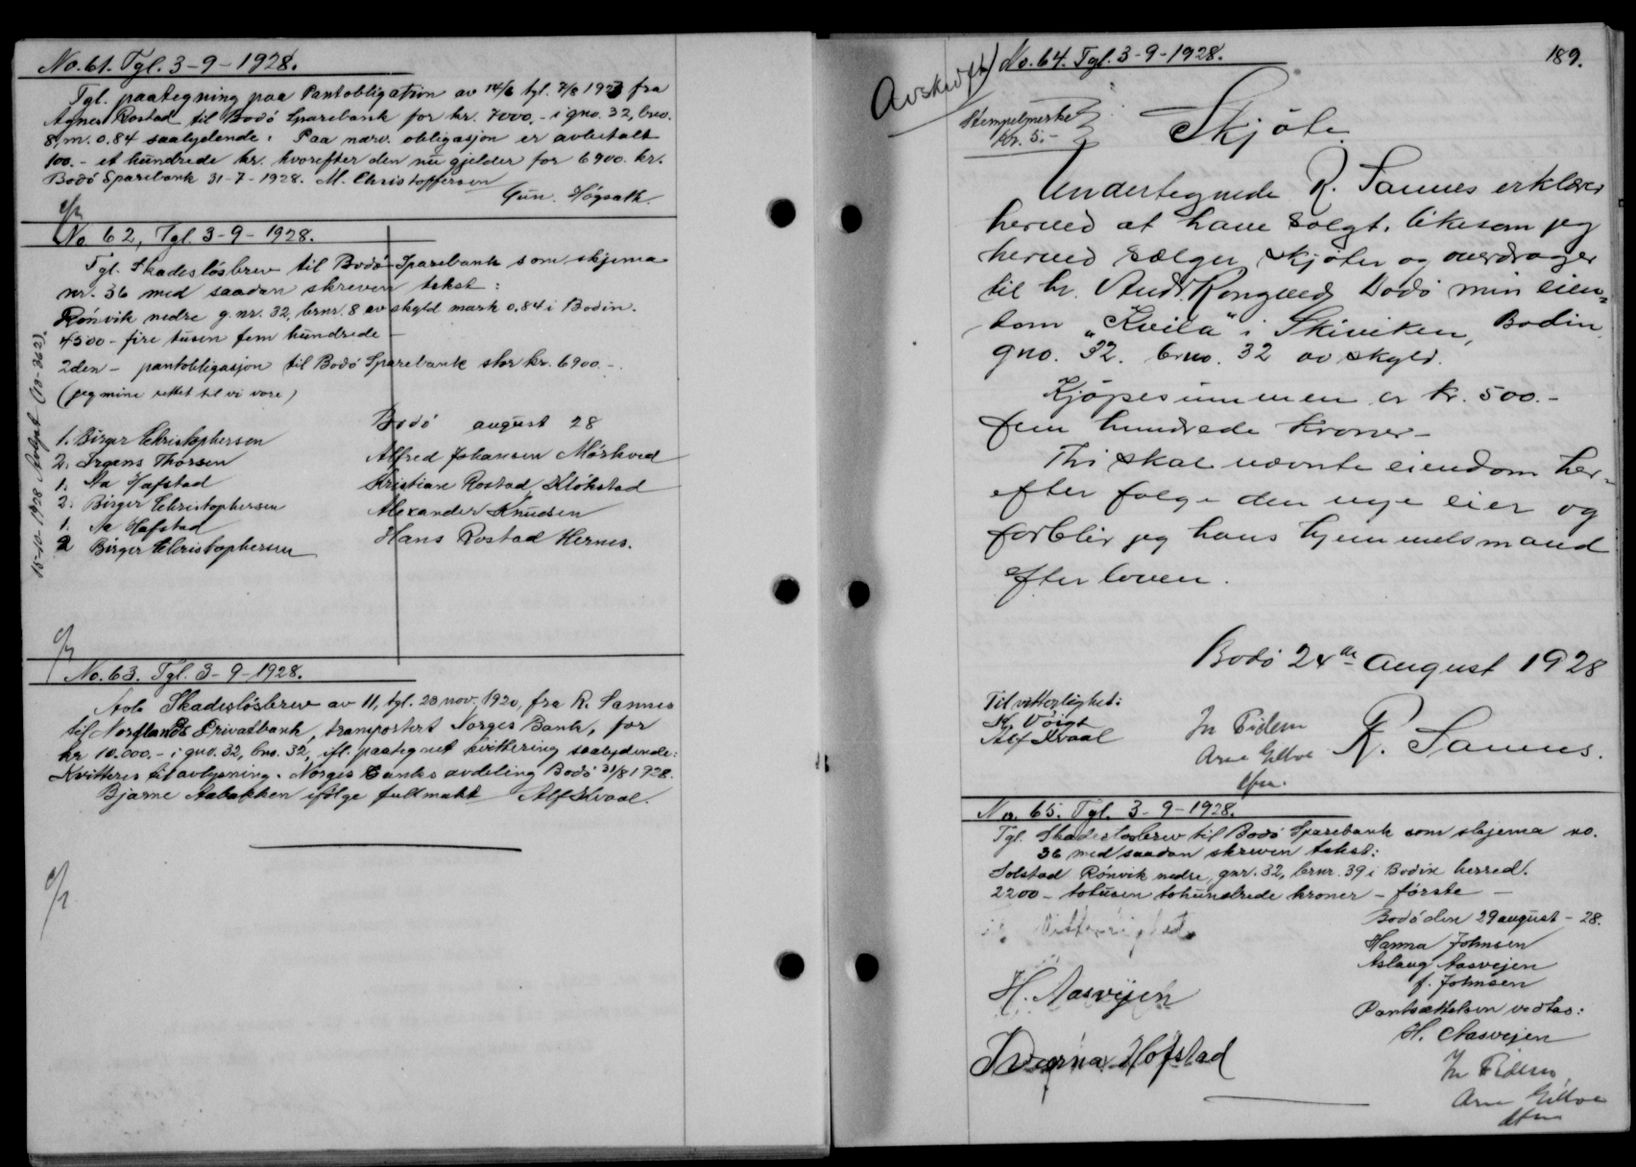 No. 61. Tgl. 3-9-1928.
Tgl. paategning paa Pantobligation av 14/6 tgl. 7/8 1923 fra
Agnes Rostad til Bodö Sparebank for kr. 7000,- i gno. 32, bno.
8, m. 0.84 saalydende: Paa nærv. obligasjon er avbetalt
100.- et hundrede kr. hvorefter den nu gjelder for 6900. kr.
Bodö Sparebank 31-7-1928. M. Christoffersen
Gun. Högsath.
No 62, Tgl. 3-9-1928.
Tgl. Skadeslösbrev til Bodö Sparebank som skjema
nr. 36 med saadan skreven tekst:
Rönvik nedre g.nr. 32, brnr. 8 av skyld mark 0.84 i Bodin.
4500 - fire tusen fem hundrede
2den - pantobligasjon til Bodö Sparebank stor kr. 6900.-.
(jeg mine rettet til vi vore)
Bodö august 28
1. Birger Christophersen
2. Irgens Thorsen
Alfred Johansen Mörkved
1. Aa Hafstad
Kristiane Rostad Klökstad
2. Birger Christophersen
Alexander Knudsen
1. Aa Hafstad
2 Birger Christophersen
Hans Rostad Hernes.
15-10-1928 Avlyst (10-362)
No. 63. Tgl. 3-9-1928.
Avl. Skadeslösbrev av 11, tgl. 23 nov. 1920, fra R. Sannes
til Nordlands Privatbank, transportert Norges Bank, for
kr 10.000.- i gno. 32, bno. 32, ifl. paategnet kvittering saalydende:
Kvitteres til avlysning. Norges Banks avdeling Bodö 31/8 1928.
Bjarne Aabakken ifölge fullmakt Alf Kvaal.
189.
Avskrift) No. 64. Tgl. 3-9-1928.
Stempelmerke
kr. 5.-
Skjöte.
Undertegnede R. Sannes erklærer
herved at have solgt, likesom jeg
herved sælger, skjöter og overdrager
til hr. Andr. Kongsved Bodö min eien=
dom "Kvila" i Skiviken, Bodin
gno. 32. bno. 32 av skyld.
Kjöpesummen er kr. 500.-
fem hundrede kroner-
Thi skal nævnte eiendom her=
efter fölge den nye eier og
forblir jeg hans hjemmelsmand
efter loven.
Bodö 24de august 1928
Til vitterlighet:
K. Voigt
Alf Kvaal
R. Sannes.
No. 65. Tgl. 3-9-1928.
Tgl. Skadeslösbrev til Bodö Sparebank som skjema no.
36 med saadan skreven tekst:
Solstad Rönvik nedre, gnr. 32, brnr. 39 i Bodin herred.
2200 - totusen tohundrede kroner - förste -
Bodö den 29 august - 28.
Hanna Johnsen
Aslaug Aasvejen
f. Johnsen
H. Aasvejen
Pantsættelsen vedtas:
H. Aasvejen
Hofstad